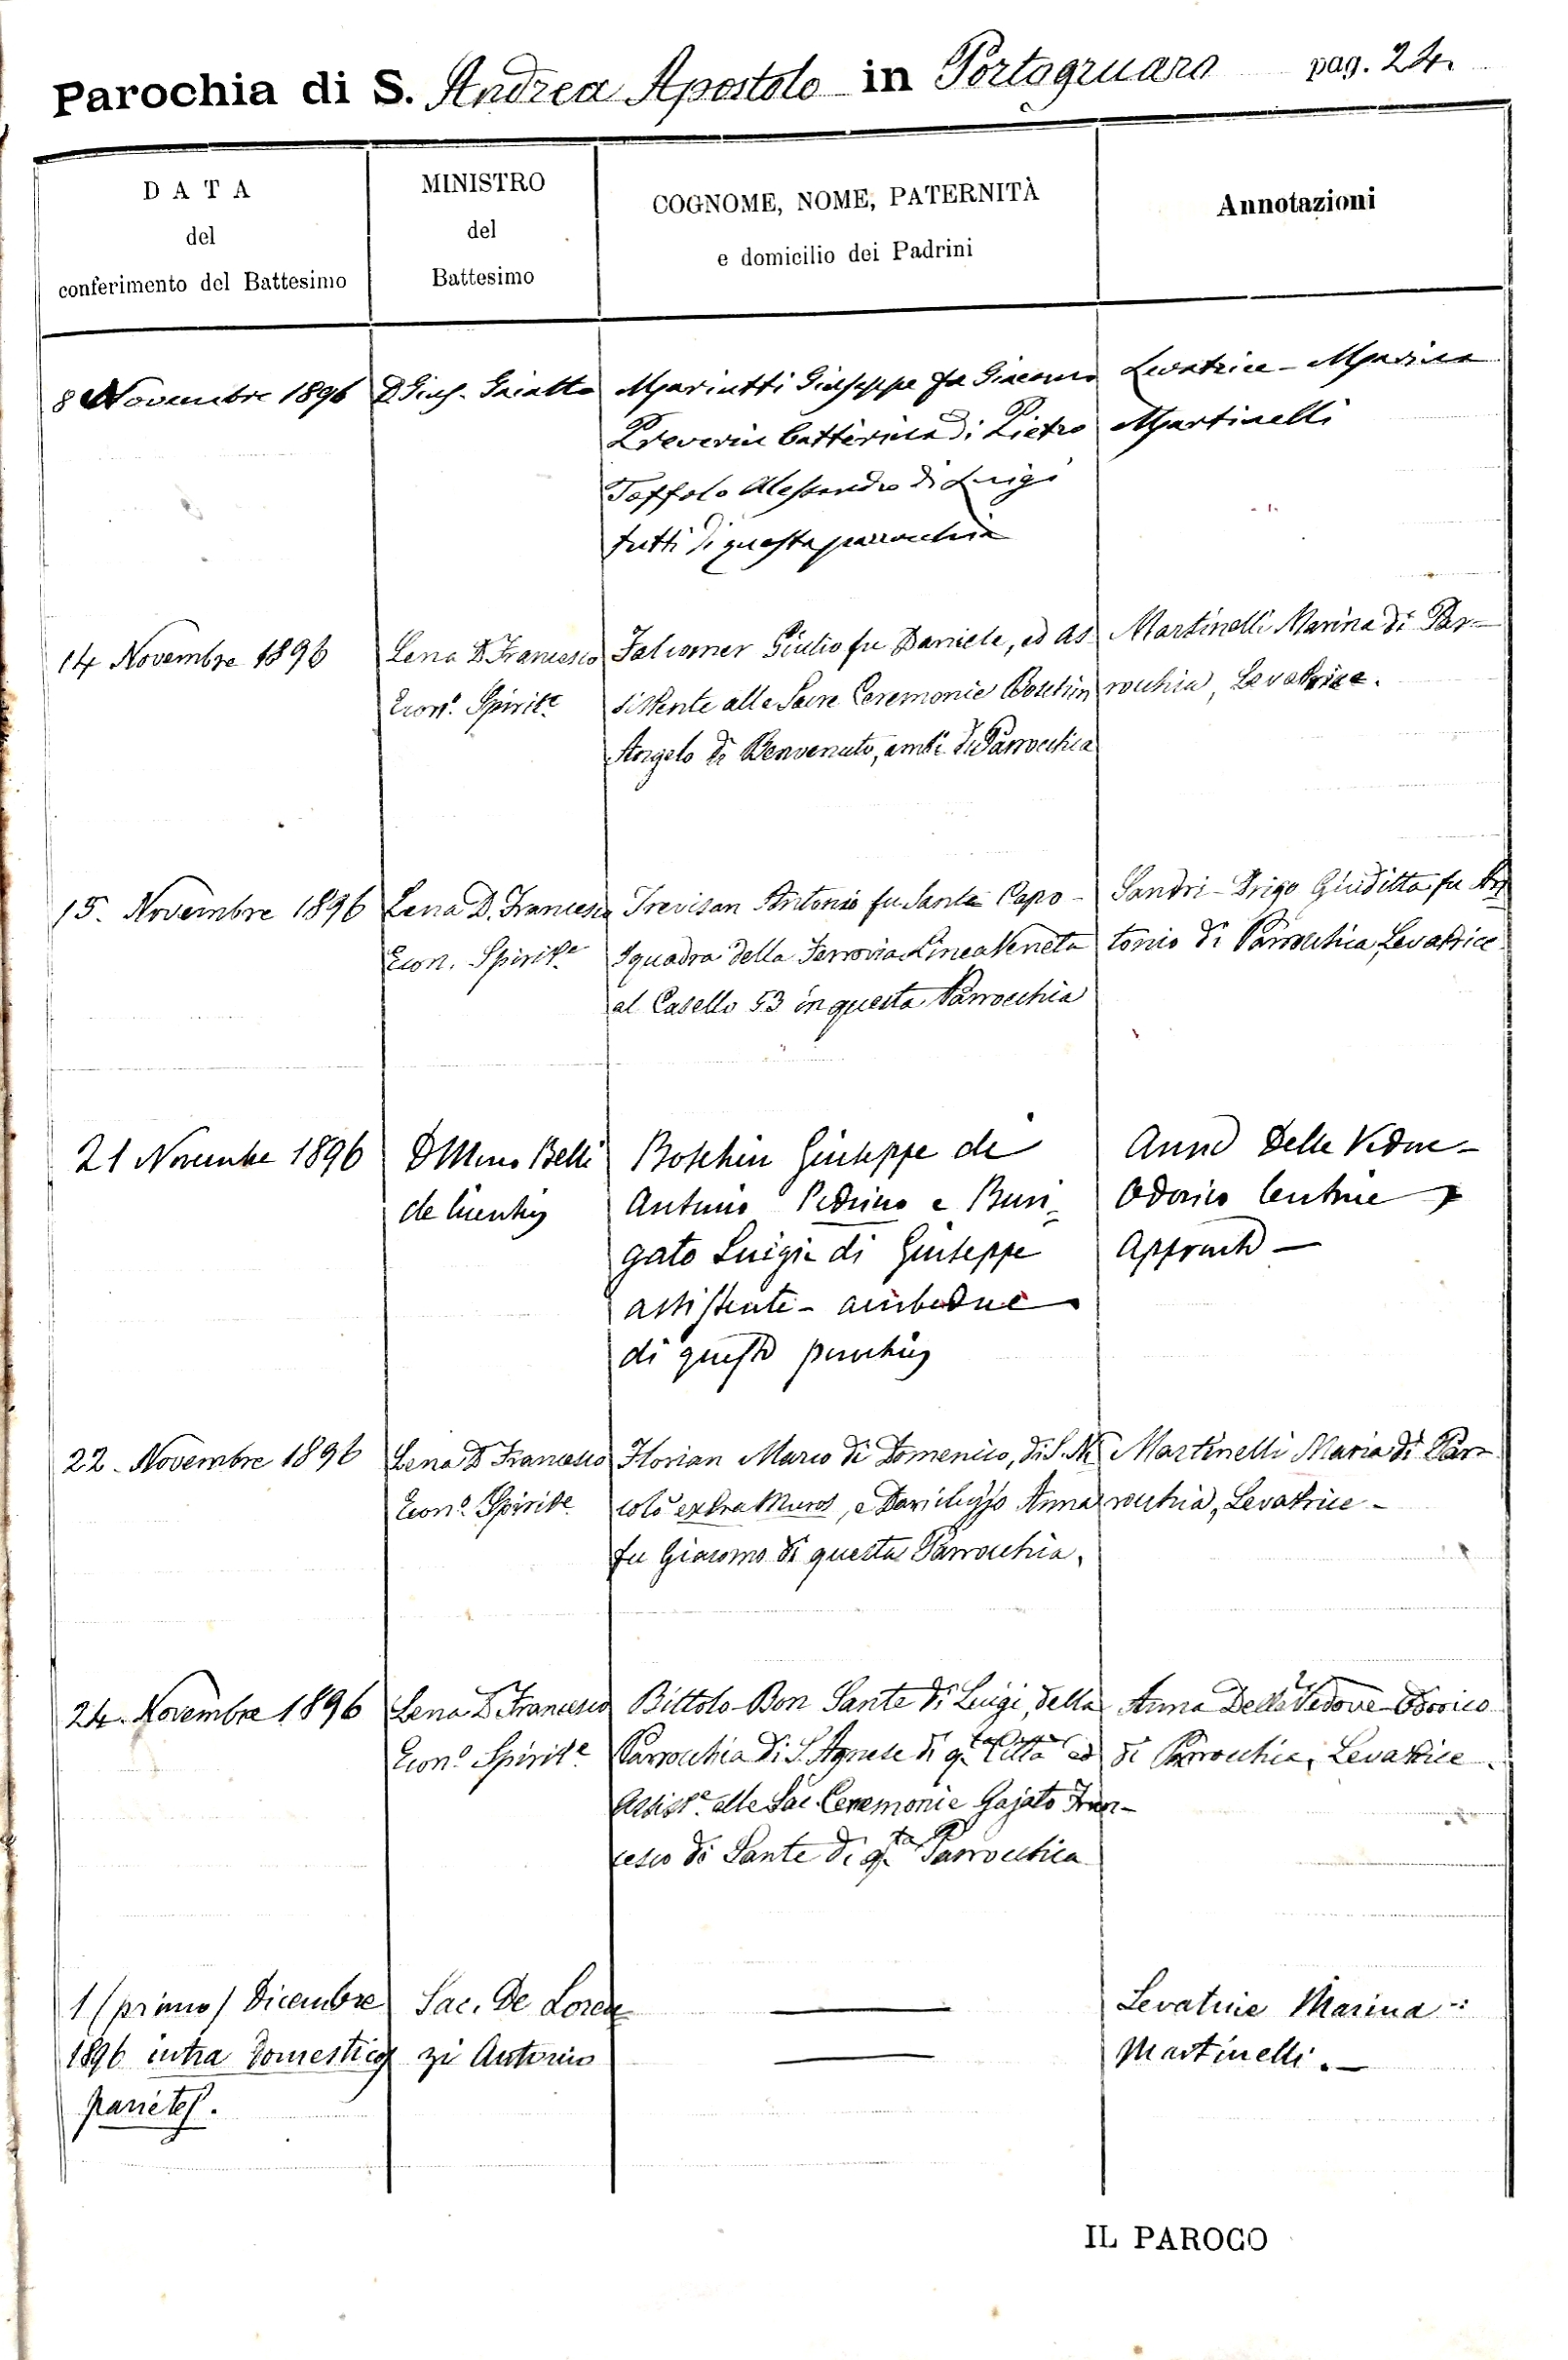 Parochia di S. Andrea Apostolo in Portogruaro pag. 24.
DATA
del
conferimento del Battesimo
MINISTRO
del
Battesimo
COGNOME, NOME, PATERNITÀ
e domicilio dei Padrini
Annotazioni
8 Novembre 1896
D. Gius. Gaiatto
Mariutti Giuseppe fu Giacomo
Catterina di Pietro
Toffolo Alessandro di Luigi
tutti di questa parrochia
Levatrice - Marina
Martinelli
14 Novembre 1896
Lena D. Francesco
Econ.º Spirit.e
Falcomer Giulio fu Daniele, ed as
sistente alle Sacre Ceremonie Boschin
Angelo di Benvenuto, ambi di Parrocchia
Martinelli Marina di Par-
rocchia, Levatrice.
15. Novembre 1896
Lena D. Francesco
Econ. Spirit.e
Trevisan Antonio fu Sante Capo-
squadra della Ferrovia Linea Veneta
al Casello 53 in questa Parrocchia
Sandri-Drigo Giuditta fu An
tonio di Parrocchia, Levatrice
21 Novembre 1896
Belli
Boschin Giuseppe di
Antonio Padrino e Buri-
gato Luigi di Giuseppe
assistente - ambedue
di questa
Anna Delle Vedove-
Odorico
22. Novembre 1896
Lena D. Francesco
Econ.º Spirit.e
Florian Marco di Domenico, di S. Ni
colò extra Muros, e Anna
fu Giacomo di questa Parrocchia.
Martinelli Maria di Par-
rocchia, Levatrice-
24. Novembre 1896
Lena D. Francesco
Econ.º Spirit.e
Bittolo-Bon Sante di Luigi, della
Parrocchia di S. Agnese di q.ta Città ed
Assist.e alle Sac. Ceremonie Gajato Fran-
cesco di Sante di q.ta Parrocchia
Anna Delle Vedove-Odorico
di Parrocchia, Levatrice.
1 (primo) Dicembre
1896 intra domesticos
parietes.
Sac. De Loren
zi Antonio
Levatrice Marina
Martinelli.-
IL PAROCO